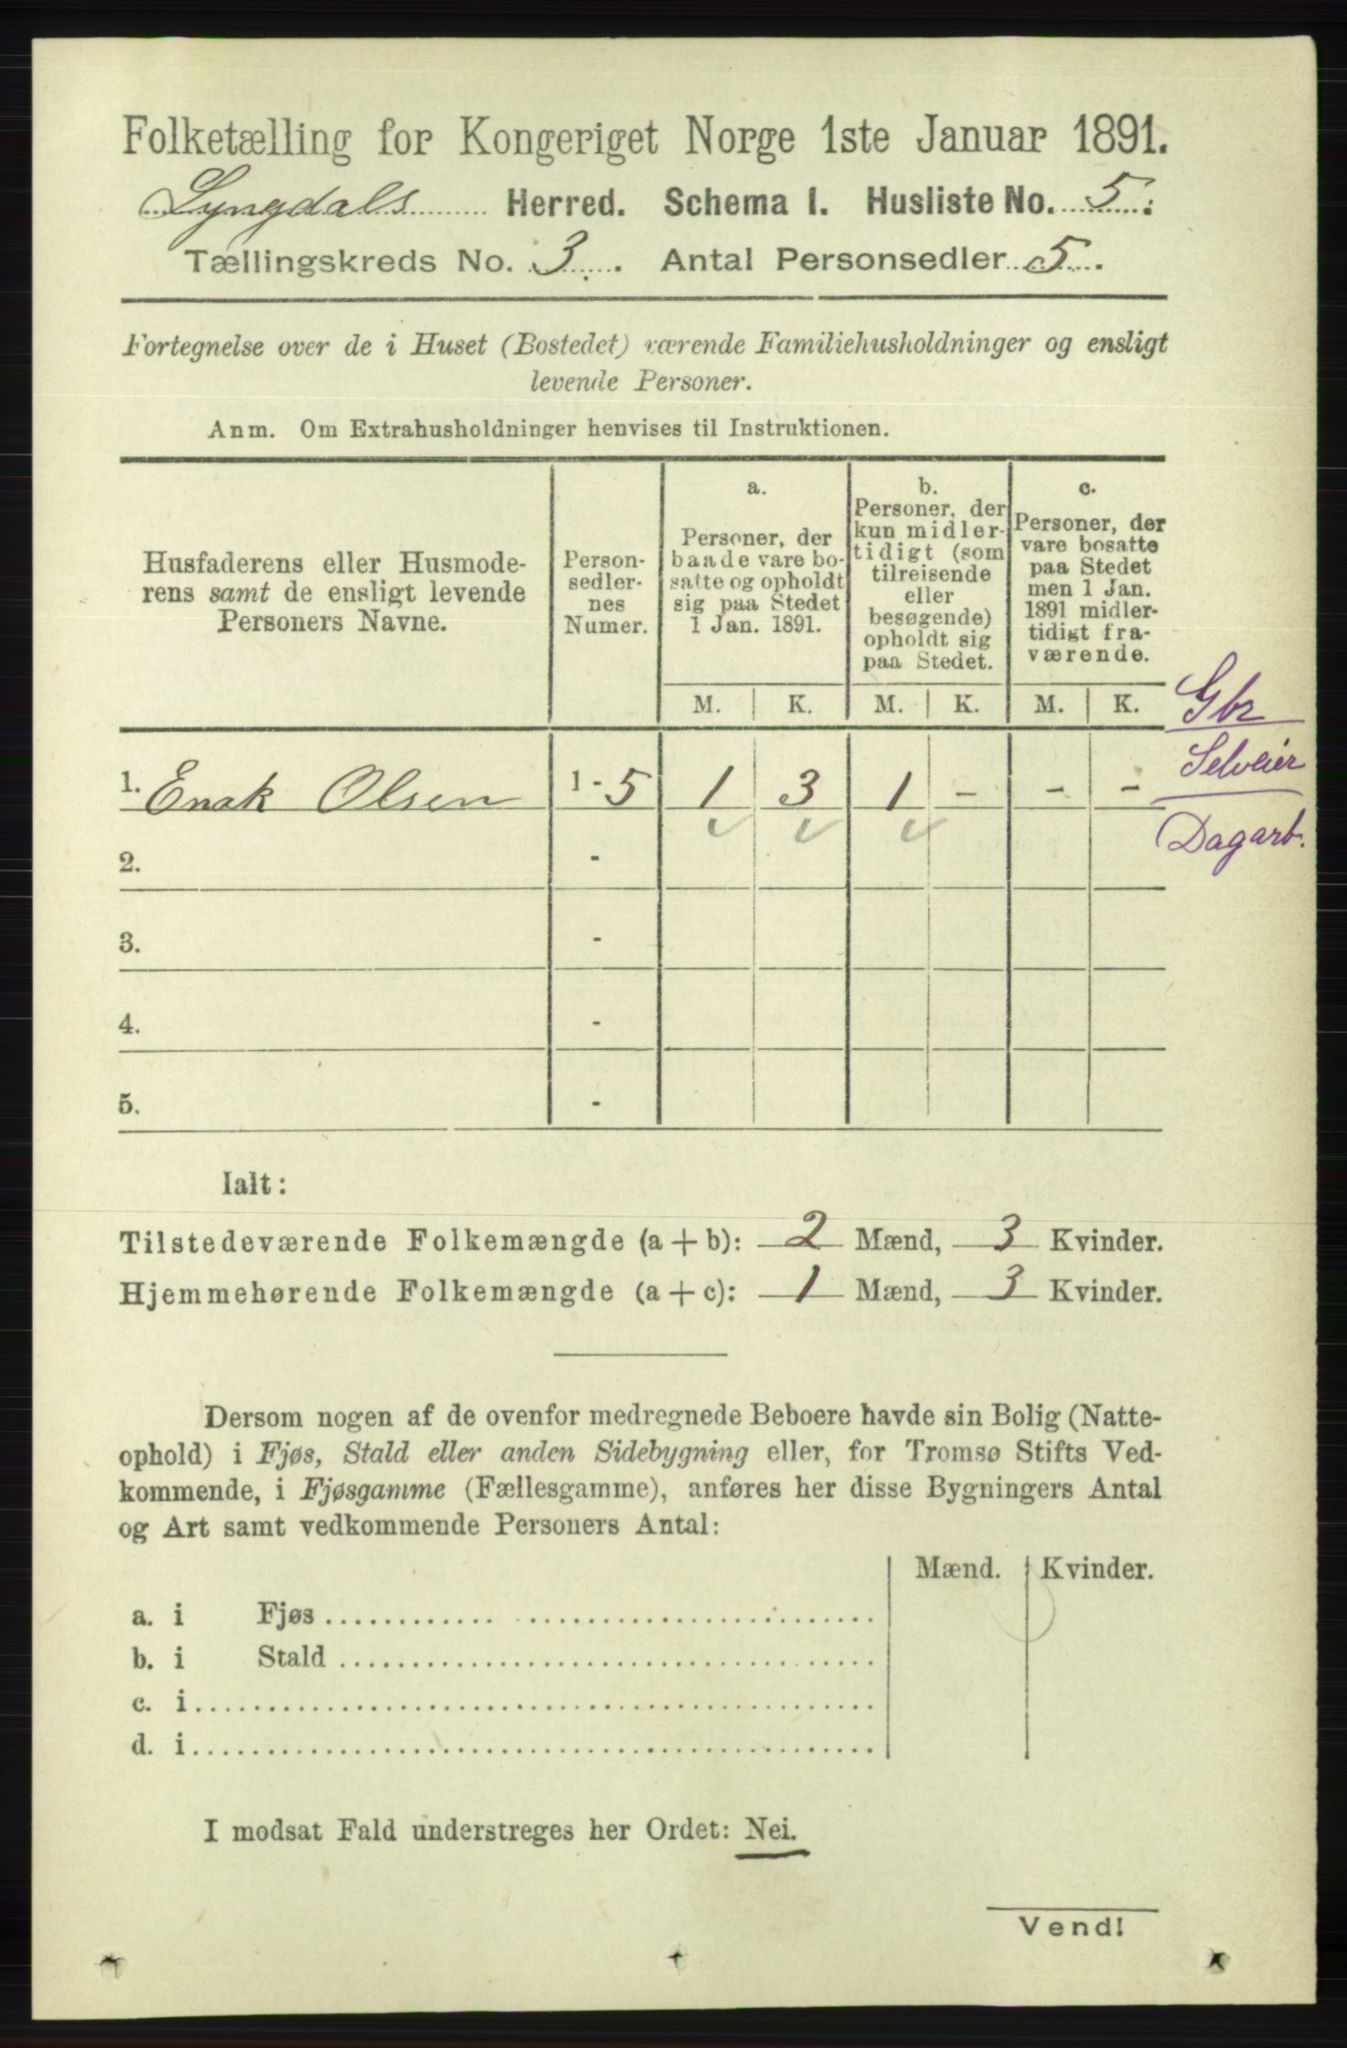 Folketælling for Kongeriget Norge 1ste Januar 1891.
Lyngdals Herred. Schema I. Husliste No. 5.
Tællingskreds No. 3. Antal Personsedler 5.
Fortegnelse over de i Huset (Bostedet) værende Familiehusholdninger og ensligt
levende Personer.
Anm. Om Extrahusholdninger henvises til Instruktionen.
Husfaderens eller Husmode-
rens samt de ensligt levende
Personers Navne.
Person-
sedler-
nes
Numer.
a.
Personer, der
baade vare bo-
satte og opholdt
sig paa Stedet
1 Jan. 1891.
b.
Personer, der
kun midler-
tidigt (som
tilreisende
eller
besøgende)
opholdt sig
paa Stedet.
c.
Personer, der
vare bosatte
paa Stedet
men 1 Jan.
1891 midler-
tidigt fra-
værende.
M. K. M. K. M. K.
Gbr
Selveier
Dagarb.
1. Enok Olsen 1 - 5 1 3 1 - - -
2. -
3. -
4. -
5. -
Ialt:
Tilstedeværende Folkemængde (a + b): 2 Mænd, 3 Kvinder.
Hjemmehørende Folkemængde (a + c): 1 Mænd, 3 Kvinder.
Dersom nogen af de ovenfor medregnede Beboere havde sin Bolig (Natte-
ophold) i Fjøs, Stald eller anden Sidebygning eller, for Tromsø Stifts Ved-
kommende, i Fjøsgamme (Fællesgamme), anføres her disse Bygningers Antal
og Art samt vedkommende Personers Antal:
Mænd. Kvinder.
a. i Fjøs
b. i Stald
c. i
d. i
I modsat Fald understreges her Ordet: Nei.
Vend!